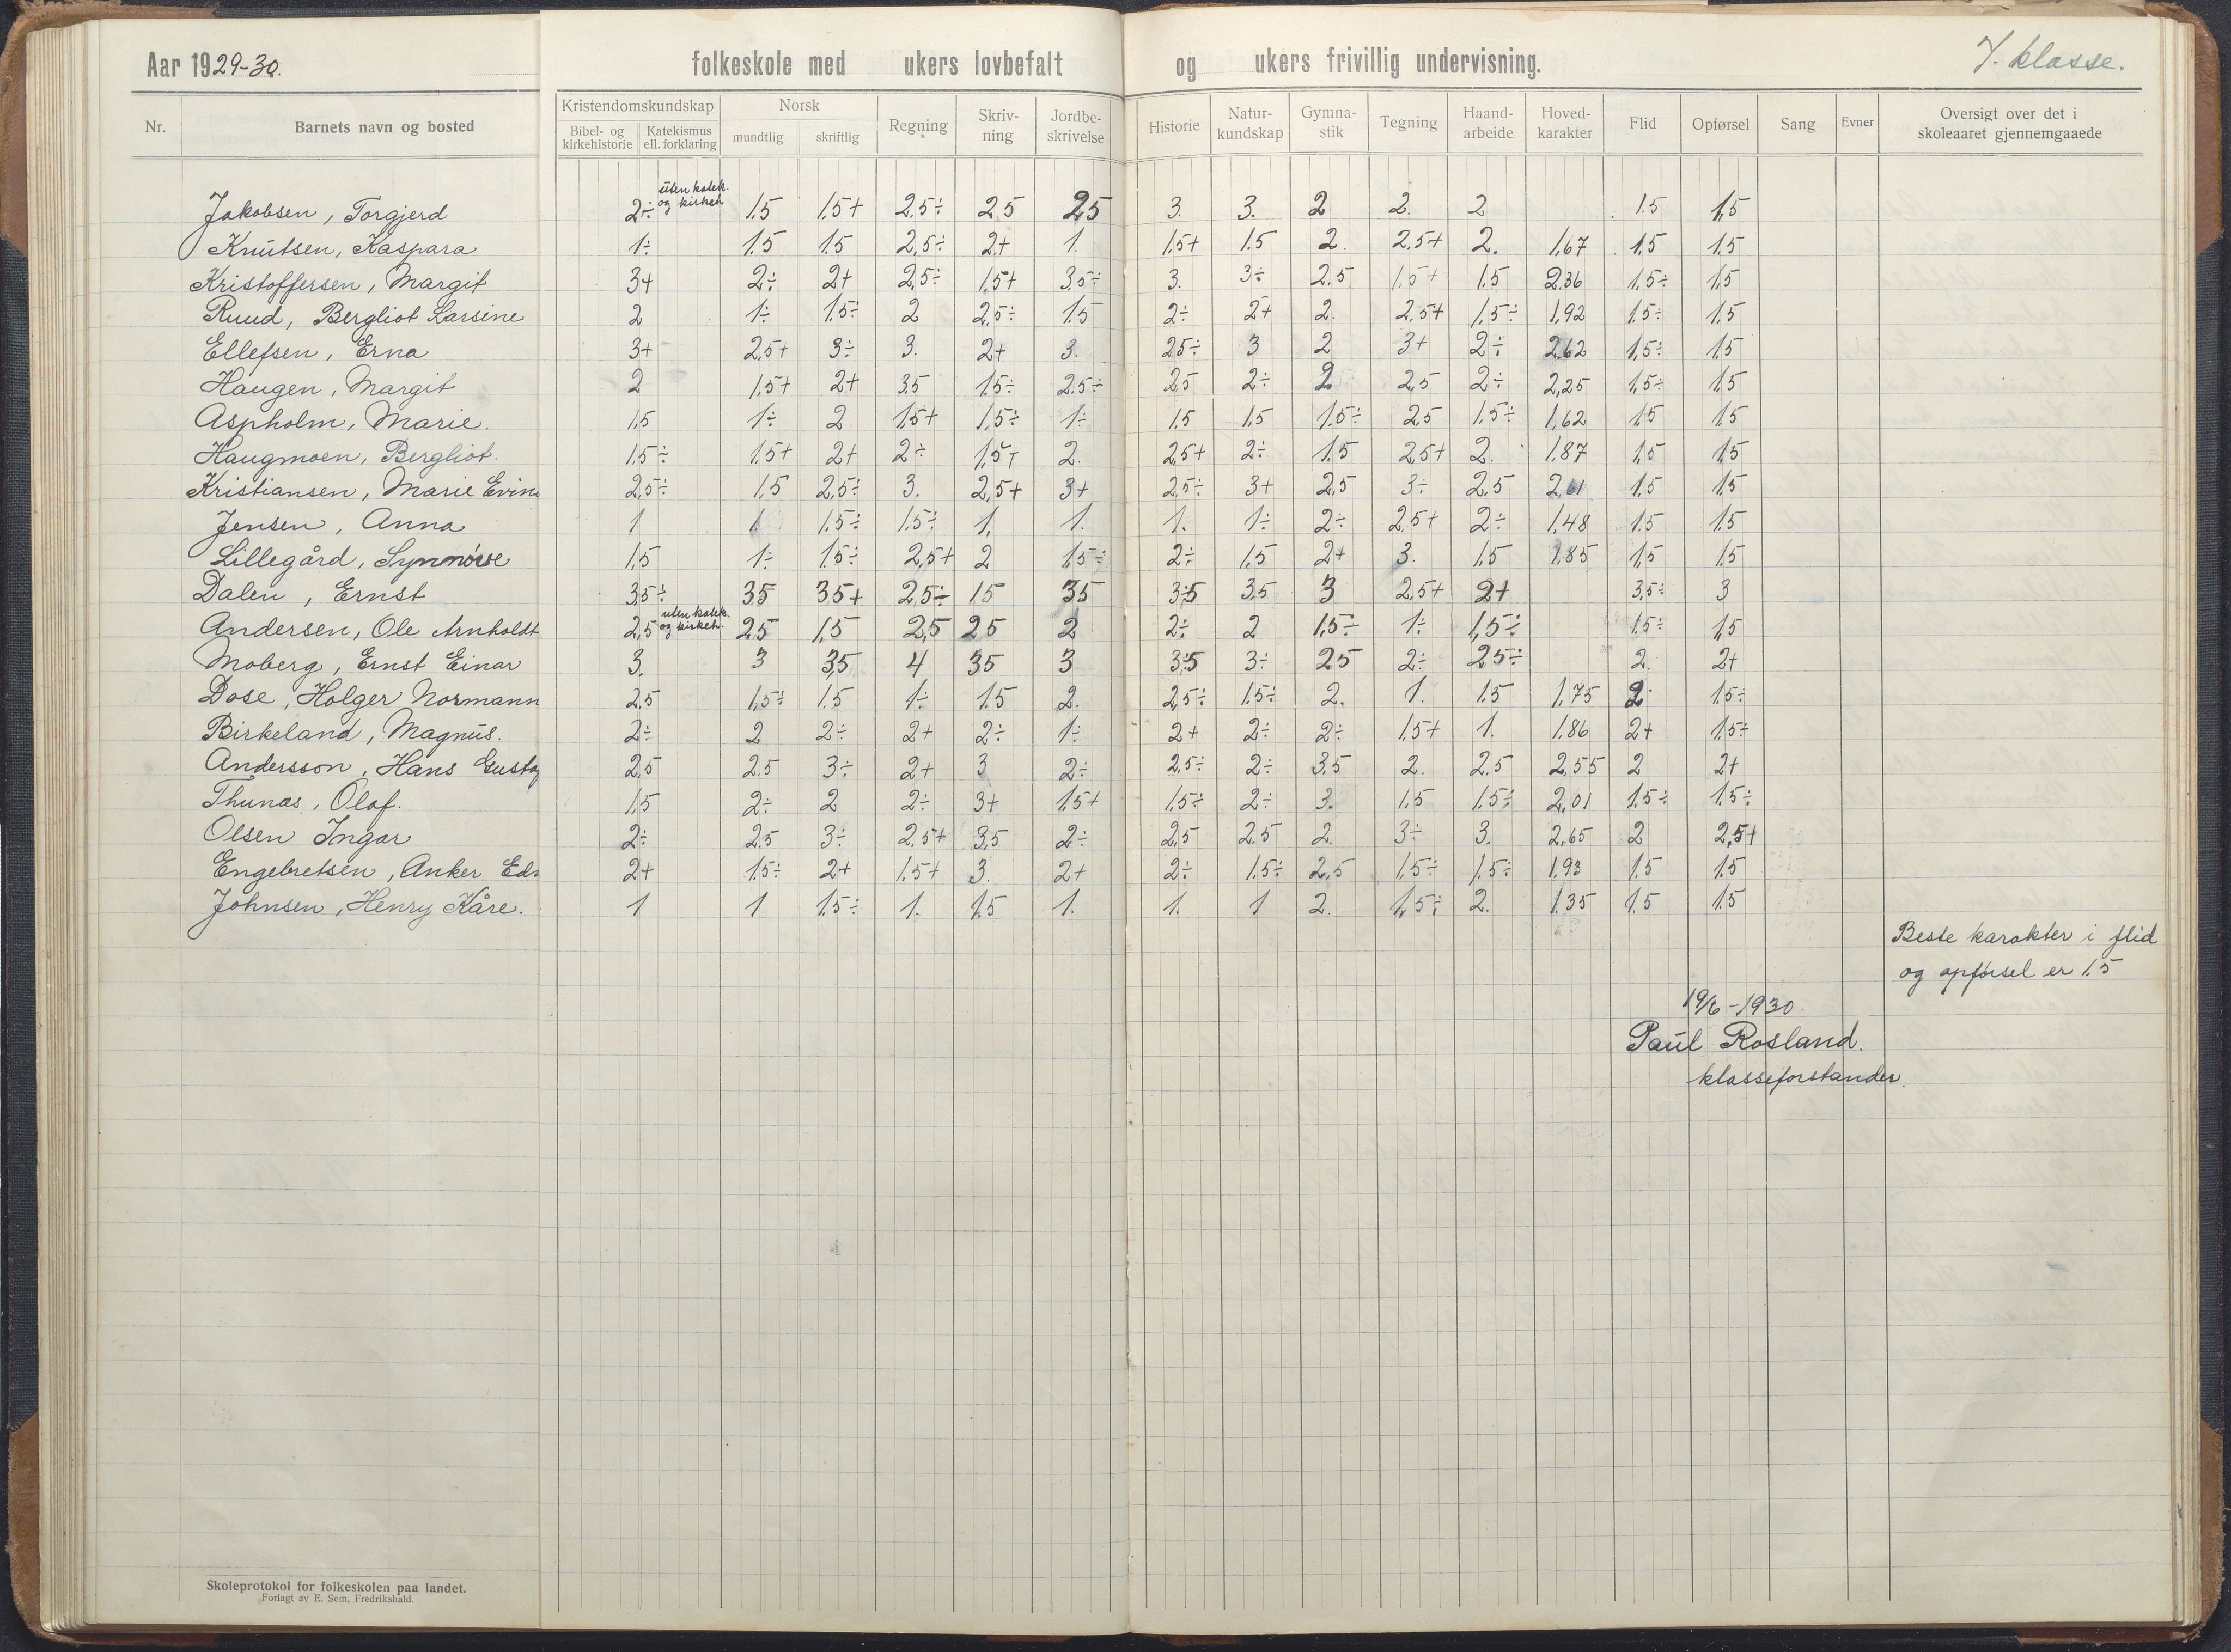 Aar 1929-30. folkeskole med ukers lovbefalt og ukers frivillig undervisning. 7. klasse.
Nr. Barnets navn og bosted Kristendomskundskap Bibel- og kirkehistorie Katekismus ell. forklaring Norsk mundtlig skriftlig Regning Skriv-ning Jordbe-skrivelse Historie Natur-kundskap Gymna-stik Tegning Haand-arbeide Hoved-karakter Flid Opførsel Sang Evner Oversigt over det i skoleaaret gjennemgaaede
Jakobsen, Torgjerd 2÷ uten katek. og kirkeh. 1.5 1.5+ 2.5÷ 2.5 2.5 3. 3. 2 2. 2 1.5 1,5
Knutsen, Kaspara 1÷ 1.5 1.5 2,5÷ 2+ 1. 1.5+ 1.5 2. 2.5+ 2. 1,67 1,5 1.5
Kristoffersen, Margit 3+ 2÷ 2+ 2,5÷ 1,5+ 3.5÷ 3. 3÷ 2.5 1,5+ 1.5 2.36 1,5÷ 1,5
Ruud, Bergliot Larsine 2 1÷ 1.5÷ 2 2,5÷ 1.5 2÷ 2+ 2. 2.5+ 1,5÷ 1,92 1.5÷ 1.5
Ellefsen, Erna 3+ 2,5+ 3÷ 3. 2+ 3. 2.5÷ 3 2 3+ 2÷ 2.62 1,5÷ 1.5
Haugen, Margit 2 1,5+ 2+ 3.5 1.5÷ 2.5÷ 2.5 2÷ 2 2,5 2÷ 2,25 1,5÷ 1.5
Aspholm, Marie. 1.5 1÷ 2 1.5+ 1,5÷ 1÷ 1,5 1,5 1.5÷ 2.5 1.5÷ 1,62 1,5 1.5
Haugmoen, Bergliot. 1.5÷ 1.5+ 2+ 2÷ 1,5+ 2. 2,5+ 2÷ 1.5 2,5+ 2. 1.87 1,5 1,5
Kristiansen, Marie Evin 2,5÷ 1.5 2,5÷ 3. 2,5+ 3+ 2.5÷ 3+ 2,5 3÷ 2.5 2,61 1.5 1.5
Jensen, Anna 1 1. 1.5÷ 1.5÷ 1. 1. 1. 1÷ 2÷ 2.5+ 2÷ 1,48 1.5 1.5
Lillegård, Synnøve 1,5 1÷ 1.5÷ 2,5+ 2 1.5÷ 2÷ 1,5 2+ 3. 1,5 1.85 1,5 1.5
Dalen, Ernst 3,5÷ 3.5 3.5+ 2,5÷ 1.5 3.5 3.5 3.5 3 2.5+ 2+ 3,5÷ 3
Andersen, Ole Arnholdt 2,5 uten katek. og kirkeh. 2.5 1,5 2,5 2.5 2 2÷ 2 1,5÷ 1÷ 1,5÷ 1.5÷ 1,5
Moberg, Ernst Einar 3. 3 3,5 4 3.5 3 3.5 3÷ 2.5 2÷ 2.5÷ 2. 2+
Dose, Holger Normann 2,5 1,5÷ 1.5 1÷ 1.5 2. 2,5÷ 1.5÷ 2. 1. 1.5 1,75 2. 1.5÷
Birkeland, Magnus. 2÷ 2 2÷ 2+ 2÷ 1÷ 2+ 2÷ 2÷ 1.5+ 1. 1.86 2+ 1.5÷
Andersson, Hans Gustaf 2,5 2.5 3÷ 2+ 3 2÷ 2,5÷ 2÷ 3.5 2. 2.5 2,55 2 2+
Thunæs, Olaf. 1,5 2÷ 2 2÷ 3+ 1,5+ 1.5÷ 2÷ 3. 1.5 1.5÷ 2,01 1.5÷ 1.5÷
Olsen Ingar 2÷ 2.5 3÷ 2.5+ 3,5 2÷ 2,5 2.5 2. 3÷ 3. 2,65 2 2,5+
Engebretsen, Anker Edv 2+ 1.5÷ 2+ 1.5+ 3. 2+ 2÷ 1.5÷ 2,5 1,5÷ 1,5÷ 1.93 1.5 1.5
Johnsen, Henry Kåre. 1 1 1.5÷ 1. 1,5 1. 1. 1 2. 1,5÷ 2. 1.35 1.5 1.5
Beste karakter i flid
og opførsel er 1.5
19/6-1930.
Paul Rosland.
klasseforstander.
Skoleprotokol for folkeskolen paa landet.
Forlagt av E. Sem, Fredrikshald.